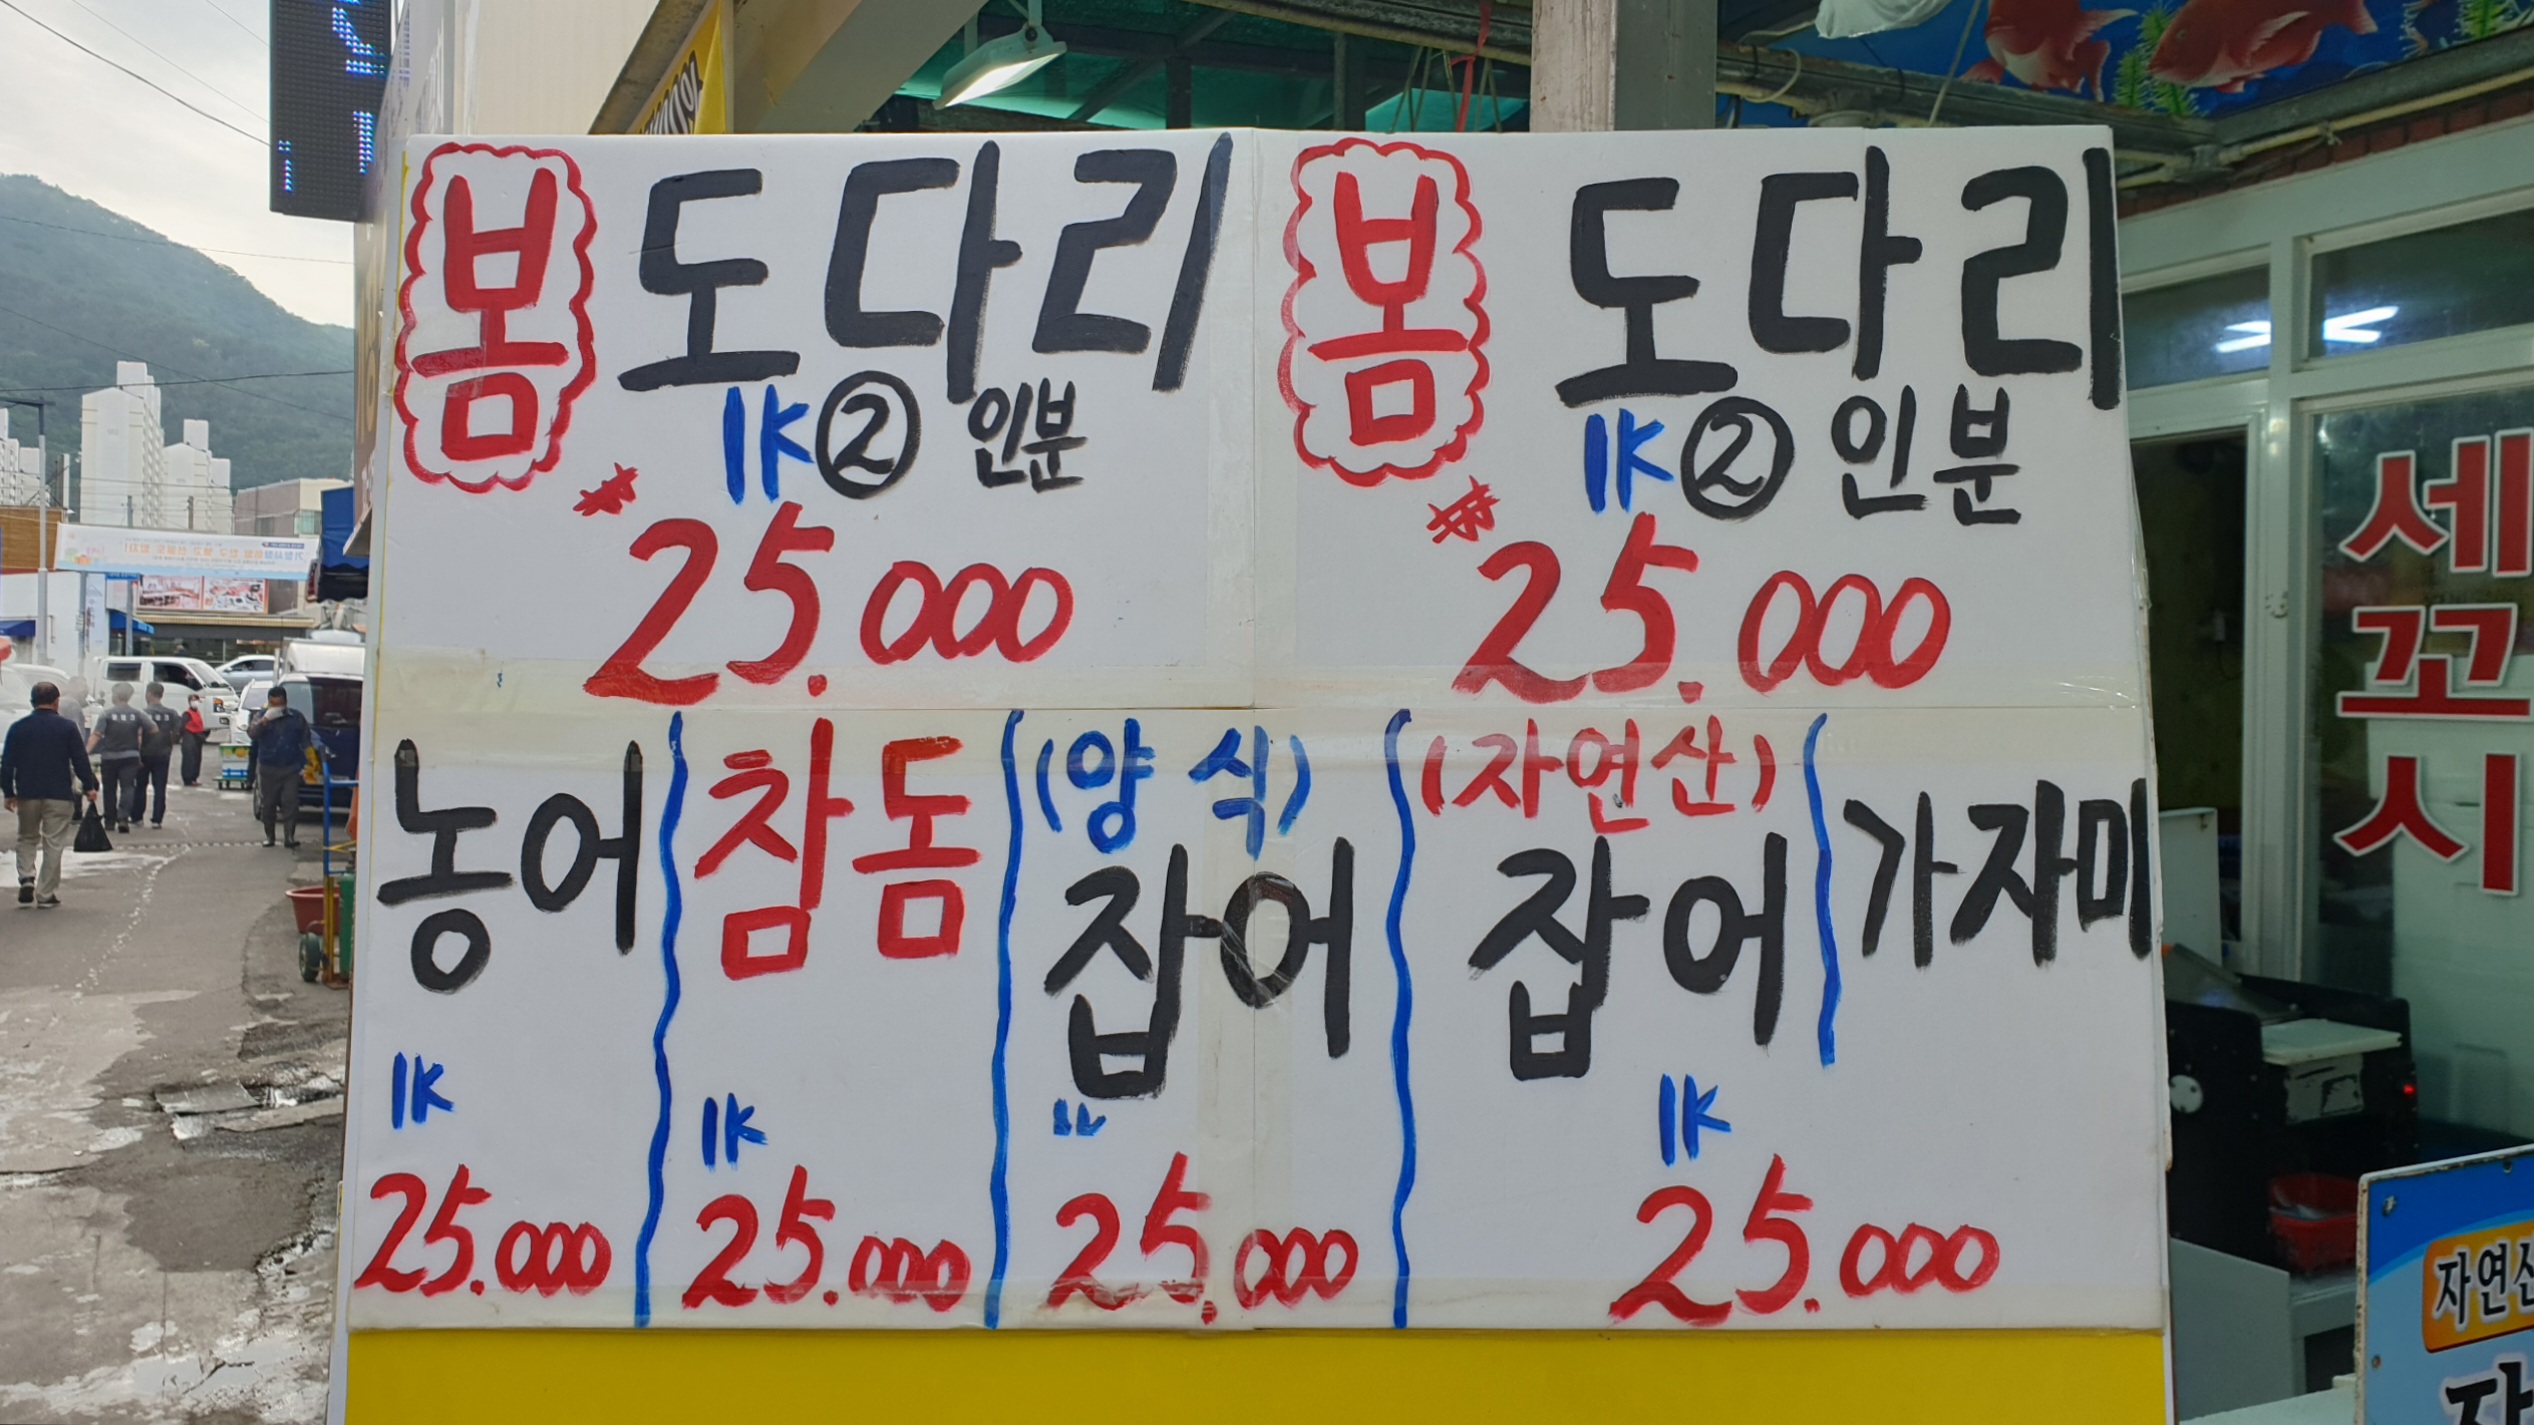 봄 도다리
1K ② 인분
₩25.000
봄 도다리
1K ② 인분
₩25.000
농어
1K
25.000
참돔
1K
25.000
(양식)
잡어
25.000
(자연산)
잡어
가자미
1K
25.000
세꼬시
자연산